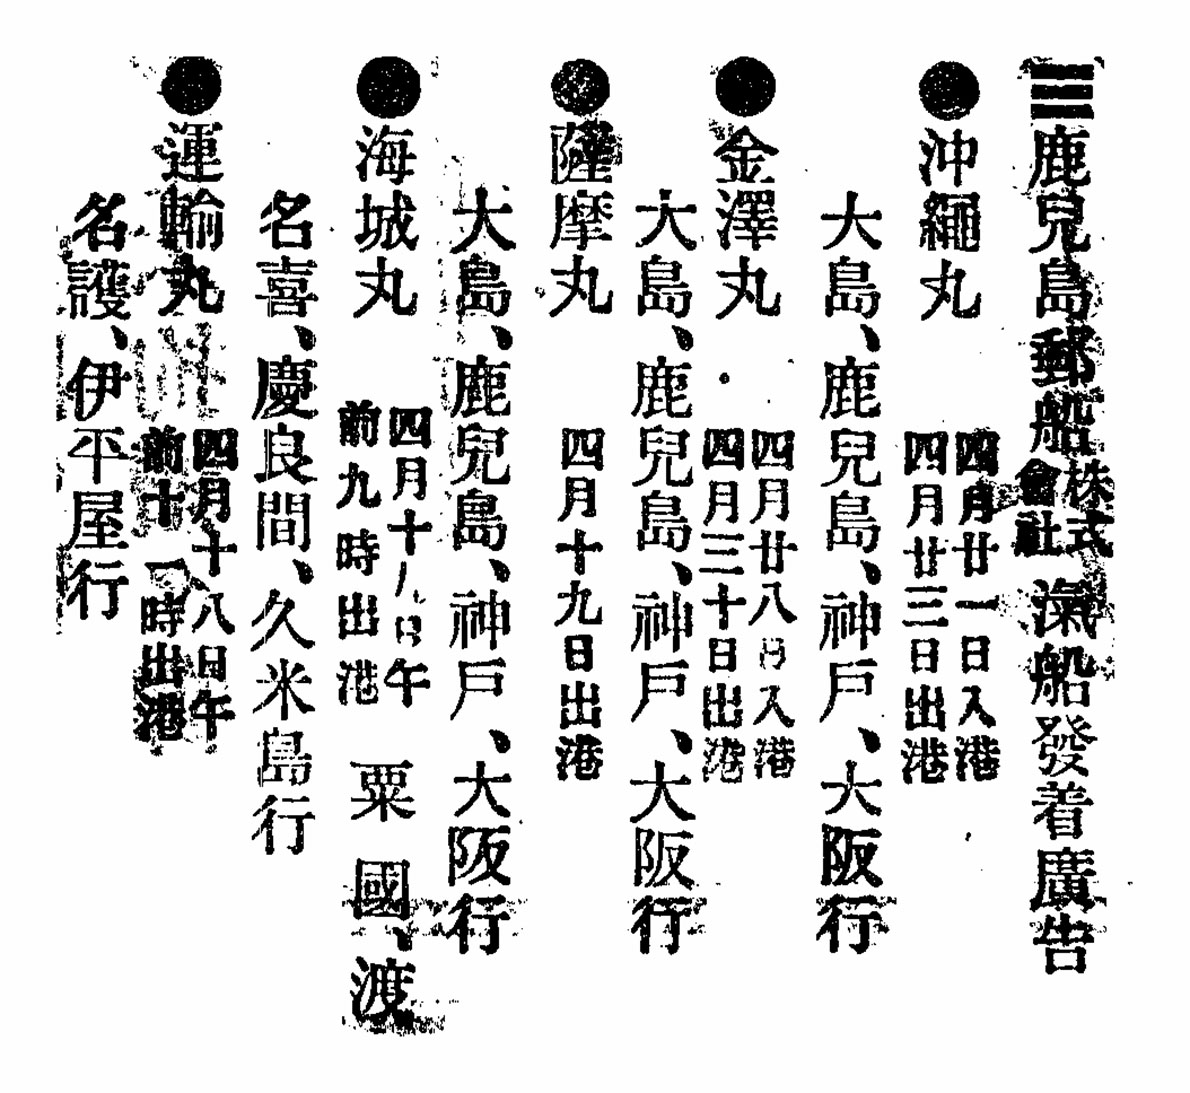 ☰鹿兒島郵船株式會社滊船發着廣告
●沖繩丸 四月廿一日入港
四月廿三日出港
大島、鹿兒島、神戶、大阪行
●金澤丸 四月廿八日入港
四月三十日出港
大島、鹿兒島、神戶、大阪行
●薩摩丸 四月十九日出港
大島、鹿兒島、神戶、大阪行
●海城丸 四月十八日午
前九時出港 粟國、渡
名喜、慶良間、久米島行
●運輸丸 四月十八日午
前十一時出港
名護、伊平屋行